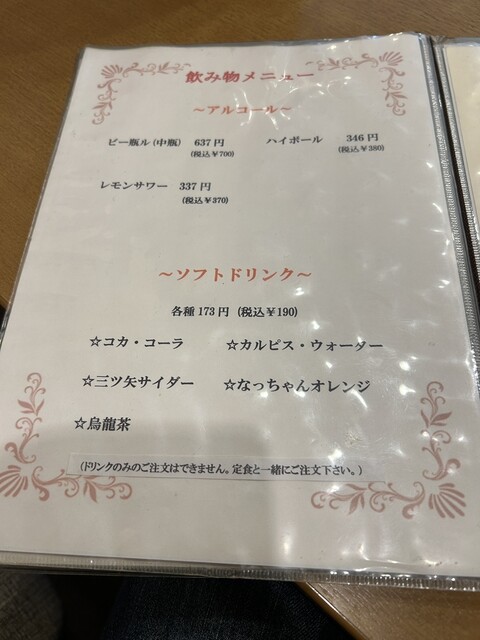 飲み物メニュー
～アルコール～
ビー瓶ル(中瓶) 637円 ハイボール 346円
(税込￥700) (税込￥380)
レモンサワー 337円
(税込￥370)
～ソフトドリンク～
各種173円 (税込￥190)
☆コカ・コーラ ☆カルピス・ウォーター
☆三ツ矢サイダー ☆なっちゃんオレンジ
☆烏龍茶
(ドリンクのみのご注文はできません。定食と一緒にご注文下さい。)